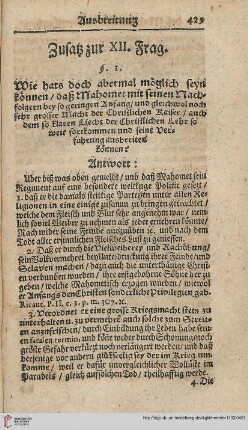 Ausbreitung 425
Zusatz zur XII. Frag.
§. 1.
Wie hats doch abermal möglich seyn
können / daß Mahomet mit seinen Nach-
folgern bey so geringen Anfang / und gleichwol noch
sehr grosser Macht der Christlichen Kaiser / auch
dem so klaren Liecht der Christlichen Lehr so
weit fortkommen und seine Ver-
führung ausbreiten
können?
Antwort:
Uber diß was oben gemelt / und daß Mahomet sein
Regiment auf eine besondere Politic gesetzt /
1. daß er die damals strittige Parteyen unter allen Re-
ligionen in eine einige zusamen zu bringen getrachtet /
welche dem Fleisch und Blut sehr annehmlich ware /
indeme nach selbiger ein jeder ungehindert leben /
Rach wider seine Feinde auszuüben / und nach dem
Tod aller sinnlichen Fleisches Lust zu geniessen.
2. Daß er durch die
sein Volk vermehret bey Unterdruckung ihrer Feinde / und
Sclaven machen / dagegen
verbunden gewesen / ihnen die Freyheit zu
geben / welche Mahometisch erzogen worden / wiewol
er Anfangs den Christen herrliche Privilegien gab.
Ricaut. P. II. c. 3. p. m. 307.
3. Verordnet er eine grosse Kriegsmacht stets zu
unterhalten / u. zu vermehre auch solche zum Streiten
an zufrischen / durch Einbildung ihr Leben habe sein
termin / und könte weder durch
grösste Gefahr verkürtzt noch verlängert werden / und sey
derjenige vor andern glückselig der im Krieg um-
komme / weil er dafür unvergleichlicher Wolluste im
Paradeis / gleich auf solchen Tod / theilhafftig werde.
4. Die